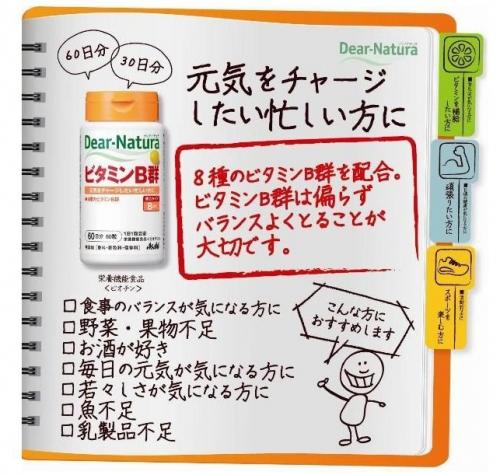 60日分
30日分
Dear-Natura
元気をチャージ
したい忙しい方に
Dear-Natura
ビタミンB群
元気をチャージしたい忙しい方に
60日分 60粒
Asahi
栄養機能食品
<ビオチン>
8種のビタミンB群を配合。
ビタミンB群は偏らず
バランスよくとることが
大切です。
ビタミンを補給
したい方に
頑張りたい方に
スポーツを
楽しむ方に
□食事のバランスが気になる方に
□野菜・果物不足
□お酒が好き
□毎日の元気が気になる方に
□若々しさが気になる方に
□魚不足
□乳製品不足
こんな方に
おすすめします